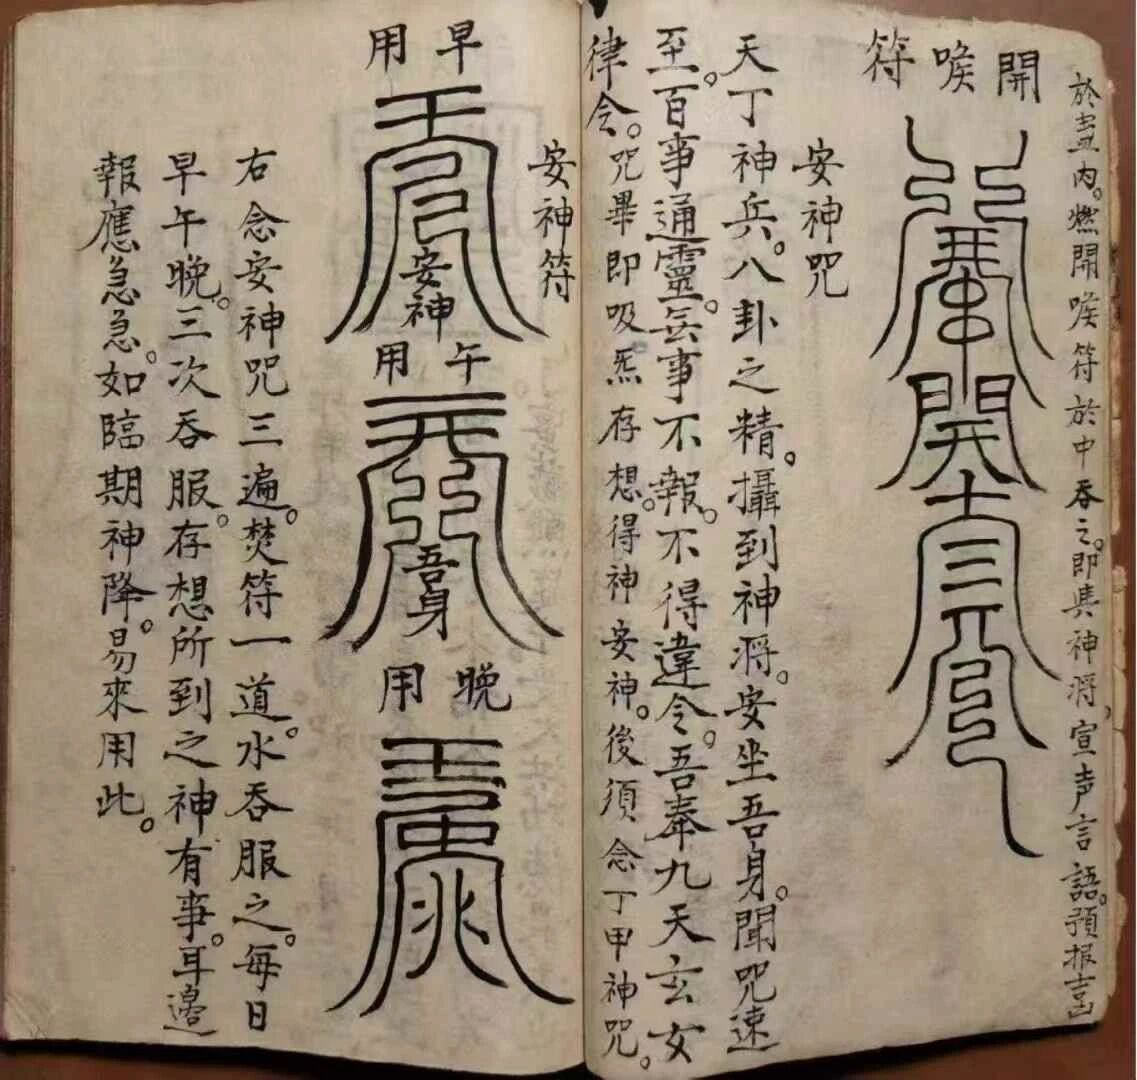 於盏内。燃開喉符於中吞之。即具神將宣声言語。預报吉凶
開喉符
開
安神咒
天丁神兵。八卦之精。攝到神將。安坐吾身。聞咒速
至。百事通靈。無事不報。不得違令。吾奉九天玄女
律令。咒畢即吸炁存想。得神安神。後須念丁甲神咒。
安神符
早用
安神
午用
吾身
晚用
右念安神咒三遍。焚符一道。水吞服之。每日
早午晚。三次吞服。存想所到之神有事。耳邊
報應急急。如臨期神降。易來用此。